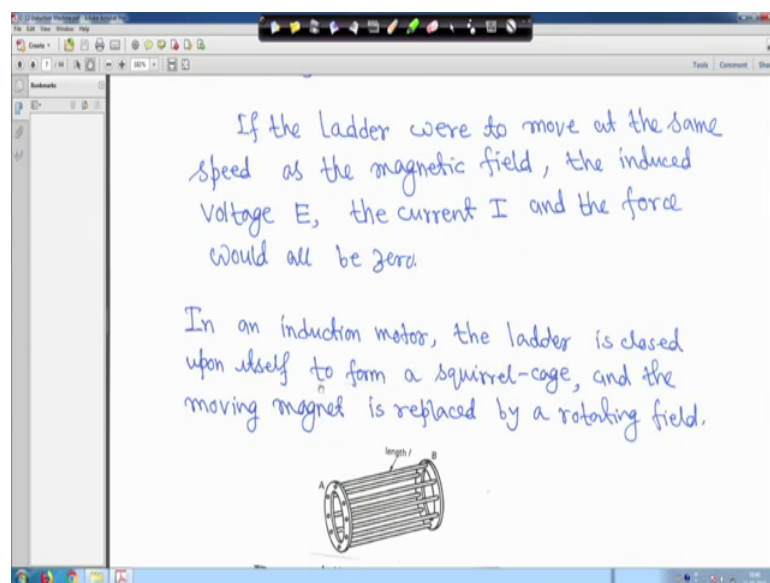 C-12 Induction Machine.pdf - Adobe Acrobat Pro
File Edit View Window Help
Create
7 / 44
182%
Tools Comment
Bookmarks
If the ladder were to move at the same
speed as the magnetic field, the induced
voltage E, the current I and the force
would all be zero.
In an induction motor, the ladder is closed
upon itself to form a squirrel-cage, and the
moving magnet is replaced by a rotating field.
length l
A
B